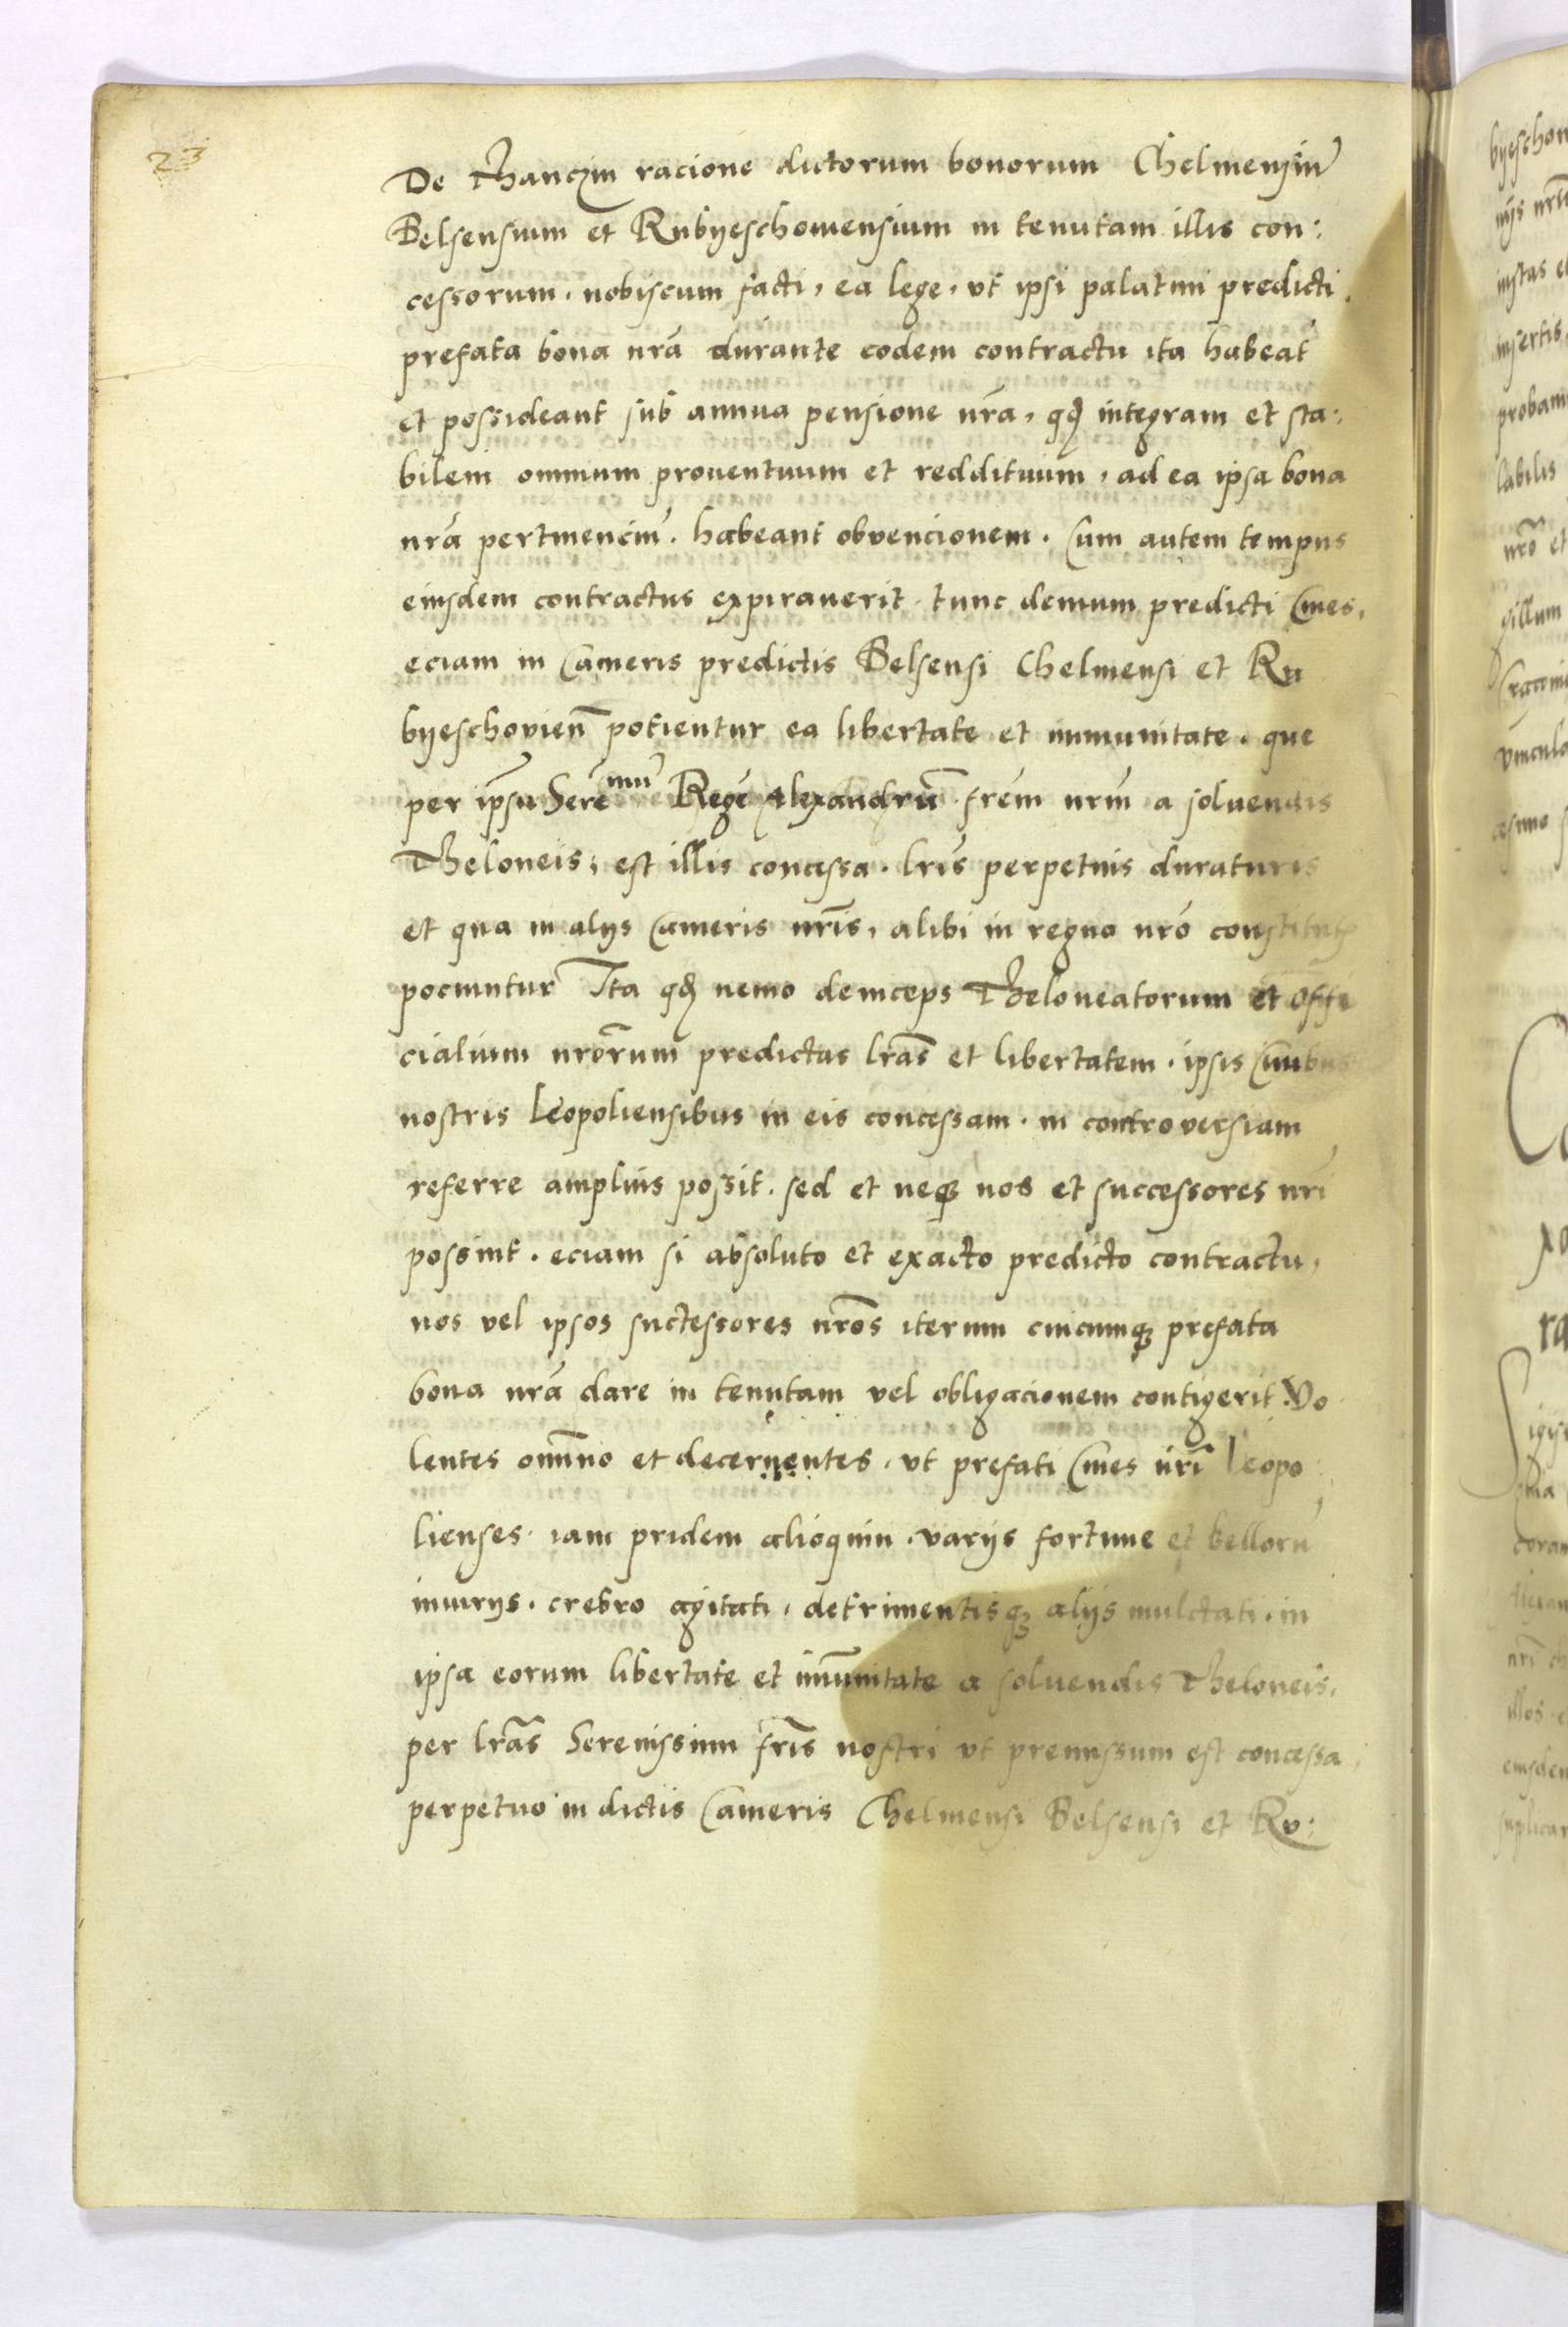 23
De Thanczin racione dictorum bonorum Chelmensiũ
Belsensium et Rubyeschouiensium in tenutam illis con:
cessorum. nobiscum facti, ea lege, vt ipsi palatini predicti.
prefata bona nrã durante eodem contractu ita habeãt
et possideant sub annua pensione nrã, qđ integram et sta:
bilem omnium prouentuum et reddituum, ad ea ipsa bona
nrã pertinenciũ. habeant obuencionem. Cum autem tempus
eiusdem contractus expirauerit. tunc demum predicti Ciues,
eciam in Cameris predictis Belsensi Chelmensi et Ru
byeschovieñ potientur ea libertate et immunitate. que
per ipsũ Serẽmũ Regẽ Alexandrũ frẽm nrm̃ a soluendis
Theloneis, est illis concessa. lrĩs perpetuis duraturis
et qua in alijs Cameris nrĩs, alibi in regno nrõ constitut
pociuntur Ita qđ nemo deinceps Theloneatorum et offi
cialium nrõrum predictas lrãs et libertatem. ipsis Ciuibus
nostris Leopoliensibus in eis concessam. in controversiam
referre amplius possit. sed et neqꝫ nos et successores nrĩ
possint. eciam si absoluto et exacto predicto contractu,
nos vel ipsos successores nrõs iterum cuicumqꝫ prefata
bona nrã dare in tenutam vel obligacionem contigerit Vo
lentes om̃ino et decernentes. vt prefati Ciues nrĩ Leopo:
lienses. iam pridem alioquin. varijs fortune et bellorũ
iniurijs. crebro agitati, detrimentisqꝫ alijs mulctati. in
ipsa eorum libertate et im̃unitate a soluendis Theloneis.
per lrãs Serenissimi frĩs nostri vt premissum est concessa.
perpetuo in dictis Cameris Chelmensi Belsensi et Ru: